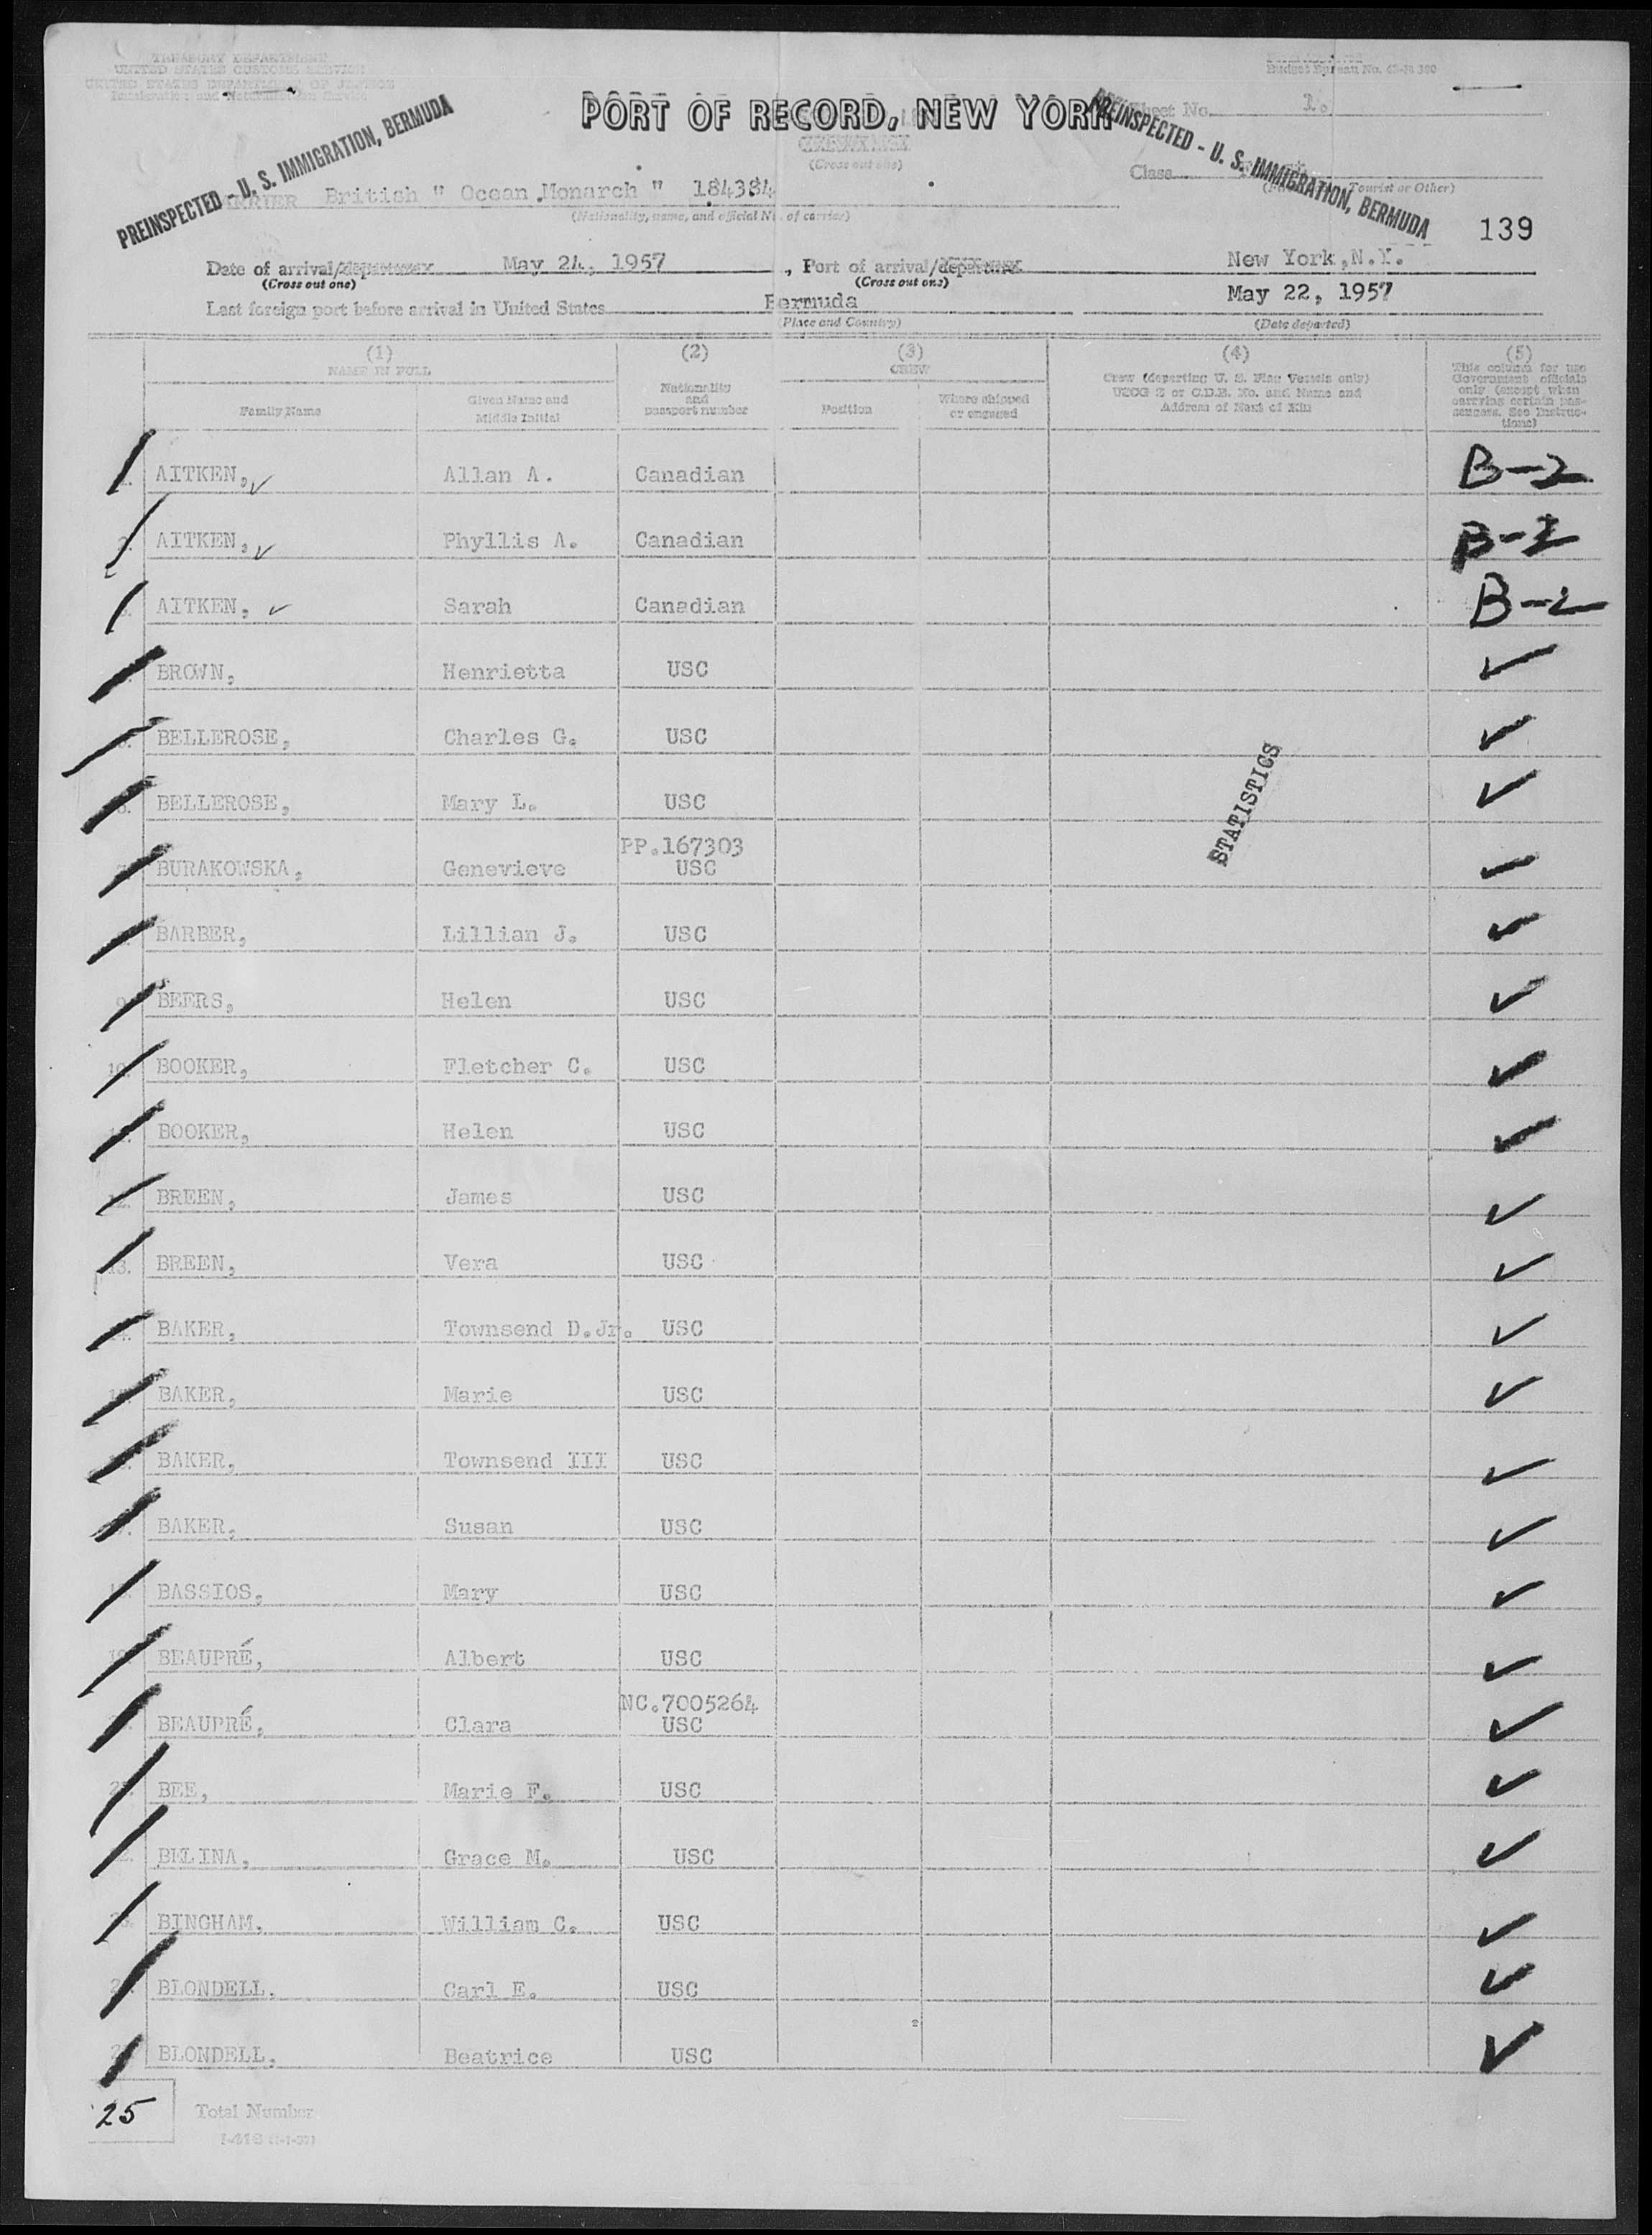 TREASURY DEPARTMENT
UNITED STATES CUSTOMS SERVICE
UNITED STATES DEPARTMENT OF JUSTICE
Immigration and Naturalization Service
Budget Bureau No. 43-R 380
PORT OF RECORD, NEW YORK
Sheet No. 1.
PREINSPECTED - U. S. IMMIGRATION, BERMUDA
PREINSPECTED - U. S. IMMIGRATION, BERMUDA
(Cross out one)
Class
Tourist or Other)
CARRIER British " Ocean Monarch " 184384
(Nationality, name, and official No. of carrier)
139
Date of arrival/departure May 24, 1957, Port of arrival/departure New York, N.Y.
(Cross out one) (Cross out one)
Last foreign port before arrival in United States Bermuda May 22, 1957
(Place and Country) (Date departed)
(1) (2) (3) (4) (5)
NAME IN FULL
Family Name
Given Name and Middle Initial
Nationality and passport number
CREW
Position
Where shipped or engaged
Crew (departing U. S. Flag Vessels only)
USCG Z or C.D.B. No. and Name and
Address of Next of Kin
This column for use Government officials only (except when carrying certain passengers. See Instructions)
AITKEN, Allan A. Canadian B-2
AITKEN, Phyllis A. Canadian B-2
AITKEN, Sarah Canadian B-2
BROWN, Henrietta USC
5. BELLEROSE, Charles G. USC
6. BELLEROSE, Mary L. USC
STATISTICS
PP.167303
7. BURAKOWSKA, Genevieve USC
BARBER, Lillian J. USC
9. BEERS, Helen USC
10. BOOKER, Fletcher C. USC
11. BOOKER, Helen USC
12. BREEN, James USC
13. BREEN, Vera USC
BAKER, Townsend D.Jr. USC
BAKER, Marie USC
BAKER, Townsend III USC
BAKER, Susan USC
BASSIOS, Mary USC
19. BEAUPRÉ, Albert USC
NC.7005264
BEAUPRÉ, Clara USC
BEE, Marie F. USC
BELINA, Grace M. USC
BINGHAM, William C. USC
BLONDELL, Carl E. USC
BLONDELL, Beatrice USC
25 Total Number
I-418